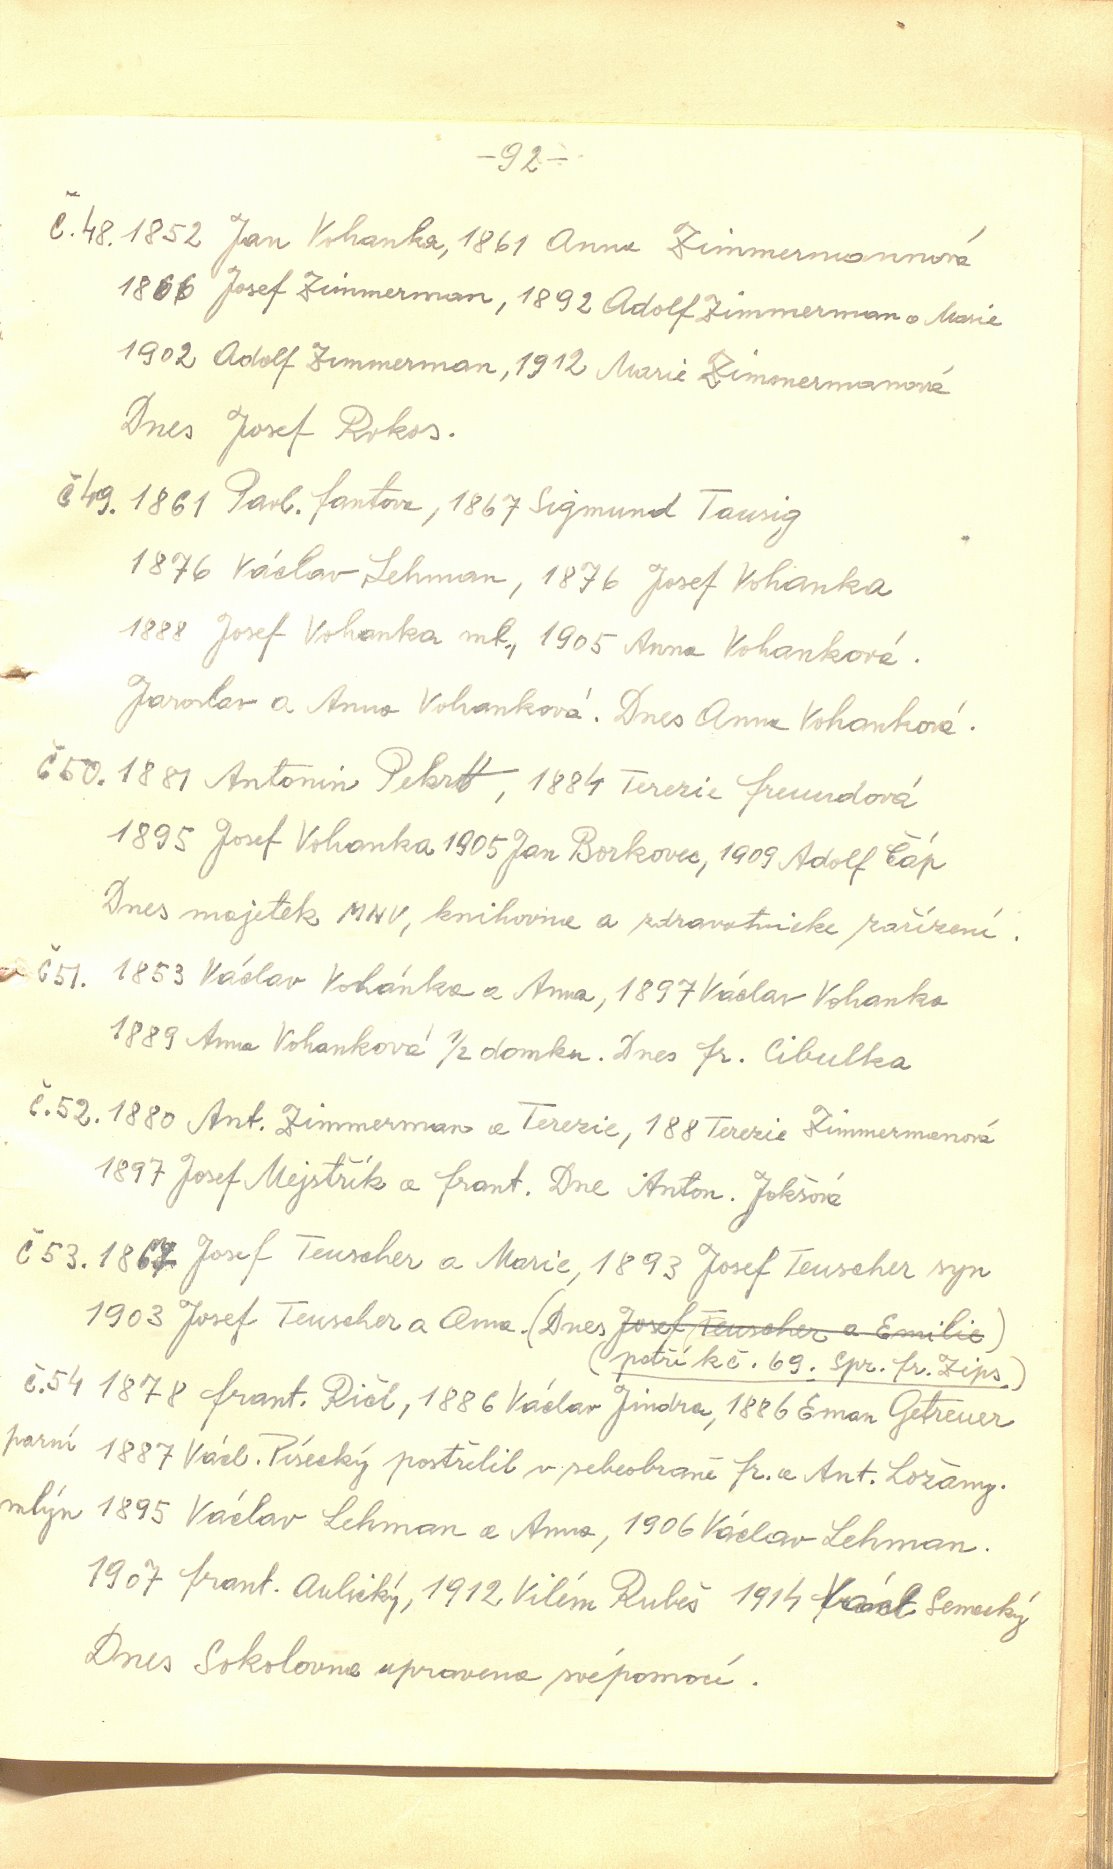 -92-
č.48. 1852 Jan Vohanka, 1861 Anna Zimmermannová
1866 Josef Zimmerman, 1892 Adolf Zimmerman a Marie
1902 Adolf Zimmerman, 1912 Marie Zimmermanová
Dnes Josef Rokos.
č49. 1861 Pavl. Fantova, 1867 Sigmund Tausig
1876 Václav Lehman, 1876 Josef Vohanka
1888 Josef Vohanka ml., 1905 Anna Vohanková.
Jaroslav a Anna Vohanková. Dnes Anna Vohanková.
č50. 1881 Antonin Pekrt, 1884 Terezie Freundová
1895 Josef Vohanka 1905 Jan Borkovec, 1909 Adolf Čáp
Dnes majetek MNV, knihovna a zdravotnicke zařízení.
č51. 1853 Václav Vohánka a Anna, 1897 Václav Vohanka
1889 Anna Vohanková 1/2 domku. Dnes Fr. Cibulka
č.52. 1880 Ant. Zimmerman a Terezie, 188 Terezie Zimmermanová
1897 Josef Mejstřík a Frant. Dne Anton. Jokšová
č53. 1867 Josef Teuscher a Marie, 1893 Josef Teuscher syn
1903 Josef Teuscher a Anna. (Dnes Josef Teuscher a Emilie)
(patří k č. 69. Spr. Fr. Zips.)
č.54 1878 Frant. Ričl, 1886 Václav Jindra, 1886 Eman Getreuer
parní 1887 Václ. Písecký postřelil v sebeobraně Fr. a Ant. Ložamy.
mlýn 1895 Václav Lehman a Anna, 1906 Václav Lehman.
1907 Frant. Aulický, 1912 Vilém Rubeš 1914 Václ Semecký
Dnes Sokolovna upravena svépomocí.